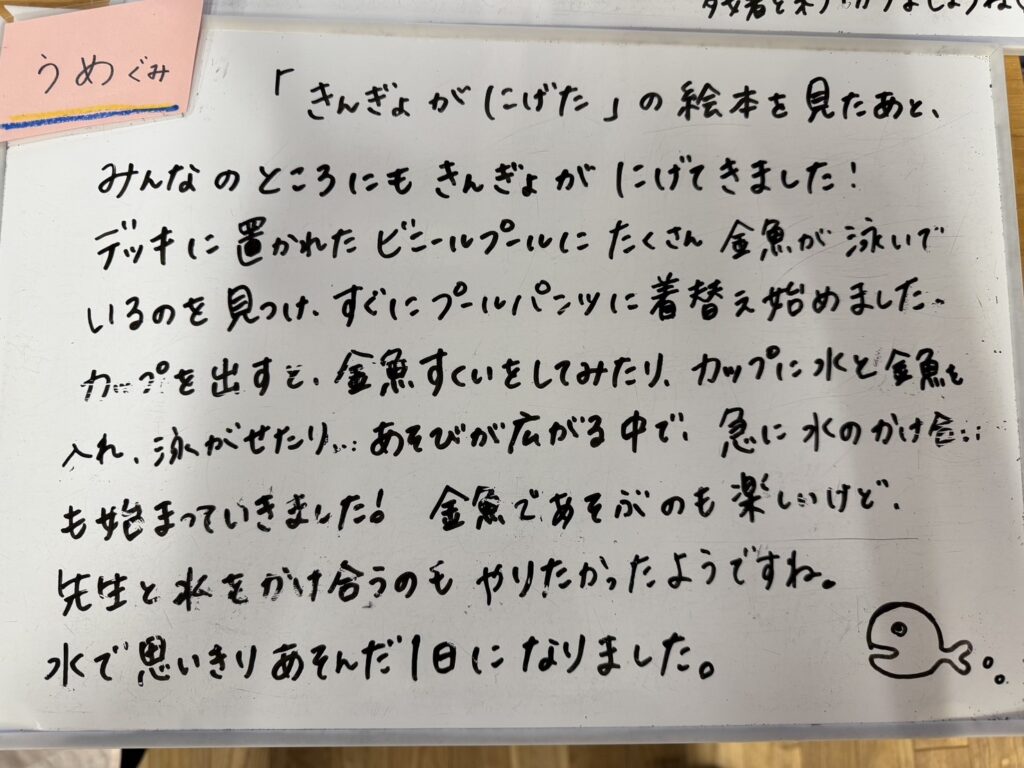 うめぐみ
「きんぎょがにげた」の絵本を見たあと、
みんなのところにもきんぎょがにげてきました!
デッキに置かれたビニールプールにたくさん金魚が泳いで
いるのを見つけ、すぐにプールパンツに着替え始めました。
カップを出すと、金魚すくいをしてみたり、カップに水と金魚を
入れ、泳がせたり…あそびが広がる中で、急に水のかけ合い
も始まっていきました!金魚であそぶのも楽しいけど、
先生と水をかけ合うのもやりたかったようですね。
水で思いきりあそんだ1日になりました。